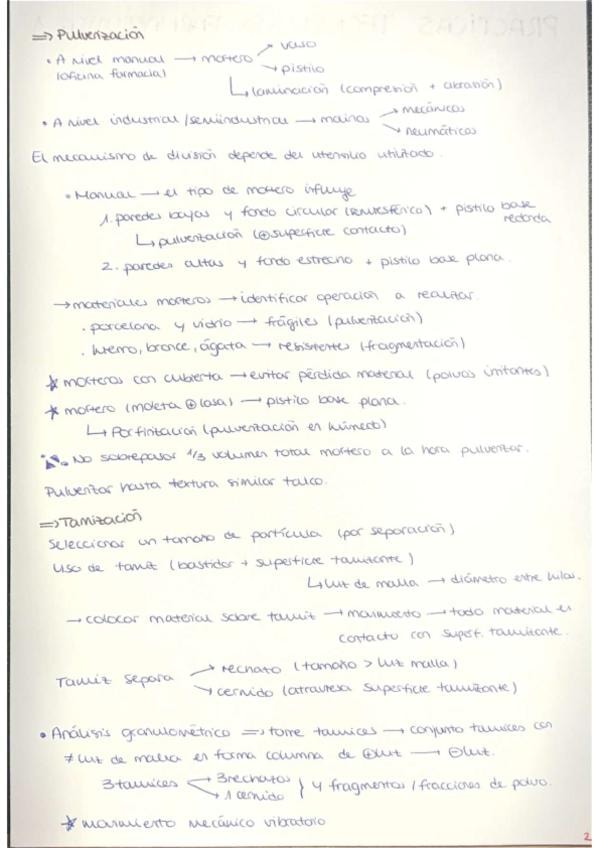 => Pulverización
• A nivel manual → mortero → vaso
(oficina farmacia) → pistilo
↳ laminación (compresión + abrasión)
• A nivel industrial/semiindustrial → molinos → mecánicos
→ neumáticos
El mecanismo de división depende del utensilio utilizado.
• Manual → el tipo de mortero influye
1. paredes bajas y fondo circular (semiesférico) + pistilo base redonda
↳ pulverización (⊕ superficie contacto)
2. paredes altas y fondo estrecho + pistilo base plana.
→ materiales morteros → identificar operación a realizar.
. porcelana y vidrio → frágiles (pulverización)
. hierro, bronce, ágata → resistentes (fragmentación)
* morteros con cubierta → evitar pérdida material (polvos irritantes)
* mortero (moleta ⊕ losa) → pistilo base plana.
↳ Porfirización (pulverización en húmedo)
No sobrepasar 1/3 volumen total mortero a la hora pulverizar.
Pulverizar hasta textura similar talco.
=> Tamización
Seleccionar un tamaño de partícula (por separación)
Uso de tamiz (bastidor + superficie tamizante)
↳ luz de malla → diámetro entre hilos.
→ colocar material sobre tamiz → movimiento → todo material en
contacto con superf. tamizante.
Tamiz separa → rechazo (tamaño > luz malla)
→ cernido (atraviesa superficie tamizante)
• Análisis granulométrico => torre tamices → conjunto tamices con
≠ luz de malla en forma columna de ⊕luz → ⊖luz.
3 tamices → 3 rechazos } 4 fragmentos/fracciones de polvo.
→ 1 cernido
* movimiento mecánico vibratorio
2